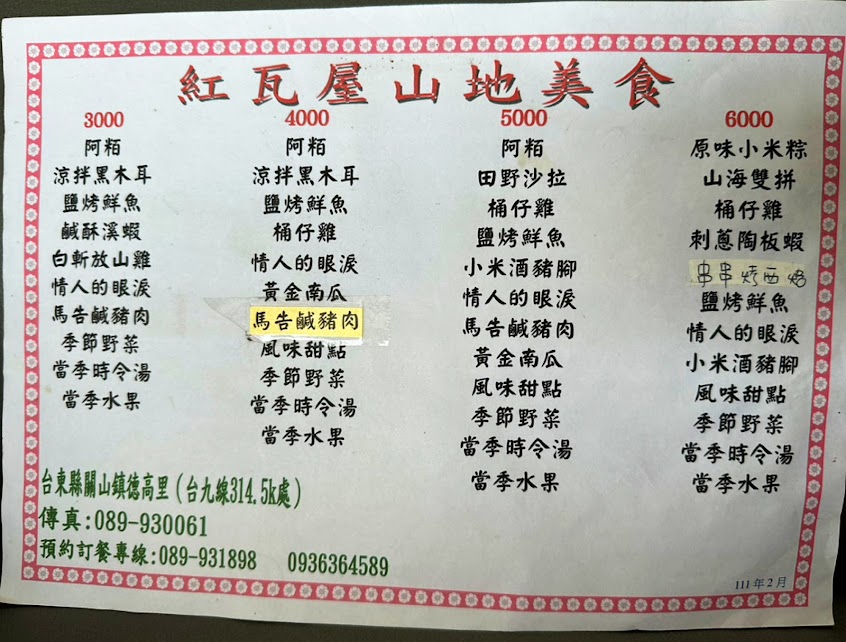 紅瓦屋山地美食
3000
阿粨
涼拌黑木耳
鹽烤鮮魚
鹹酥溪蝦
白斬放山雞
情人的眼淚
馬告鹹豬肉
季節野菜
當季時令湯
當季水果
4000
阿粨
涼拌黑木耳
鹽烤鮮魚
桶仔雞
情人的眼淚
黃金南瓜
馬告鹹豬肉
風味甜點
季節野菜
當季時令湯
當季水果
5000
阿粨
田野沙拉
桶仔雞
鹽烤鮮魚
小米酒豬腳
情人的眼淚
馬告鹹豬肉
黃金南瓜
風味甜點
季節野菜
當季時令湯
當季水果
6000
原味小米粽
山海雙拼
桶仔雞
刺蔥陶板蝦
串串烤
鹽烤鮮魚
情人的眼淚
小米酒豬腳
風味甜點
季節野菜
當季時令湯
當季水果
台東縣關山鎮德高里(台九線314.5k處)
傳真:089-930061
預約訂餐專線:089-931898 0936364589
111年2月